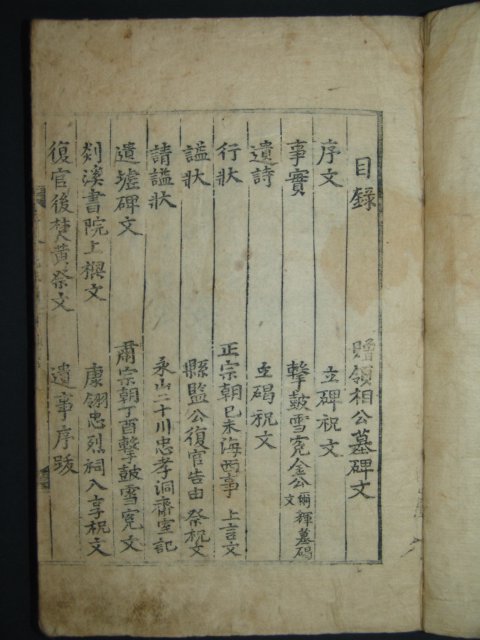 目錄
贈領相公墓碑文
序文
立碑祝文
事實
擊鼓雪冤金公 輝墓碣文
遺詩
立碣祝文
行狀
正宗朝己未海西事 上言文
謚狀
縣監公復官告由祭祝文
請謚狀
永山二十川忠孝洞齋室記
遺墟碑文
肅宗朝丁酉擊鼓雪冤文
剡溪書院上樑文
康翎忠烈祠入享祝文
復官後焚黃祭文
遺事序跋